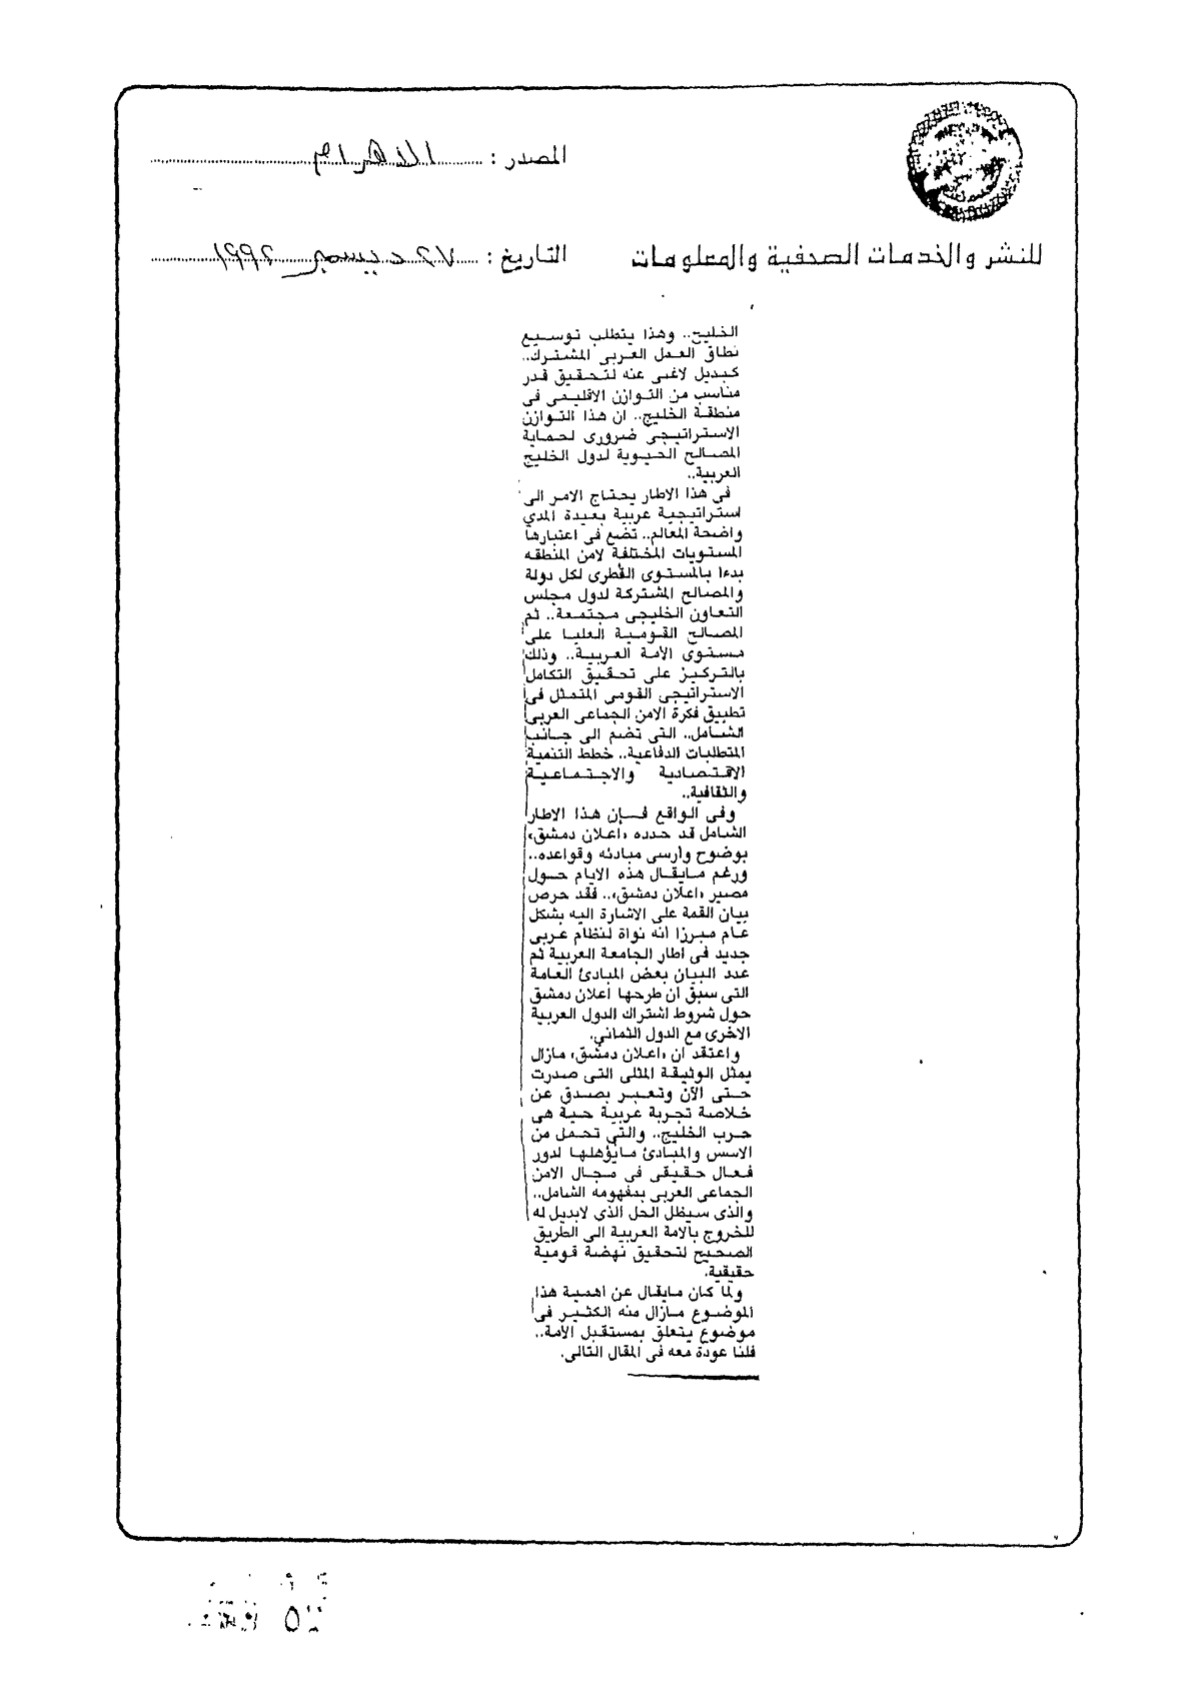 المصدر : الاهرام
للنشر والخدمات الصحفية والمعلومات
التاريخ : ٢٧ ديسمبر ١٩٩٢
الخليج.. وهذا يتطلب توسيع
نطاق العمل العربى المشترك..
كبديل لاغنى عنه لتحقيق قدر
مناسب من التوازن الاقليمى فى
منطقة الخليج.. ان هذا التوازن
الاستراتيجى ضرورى لحماية
المصالح الحيوية لدول الخليج
العربية..
فى هذا الاطار يحتاج الامر الى
استراتيجية عربية بعيدة المدي
واضحة المعالم.. تضع فى اعتبارها
المستويات المختلفة لامن المنطقه
بدءا بالمستوى القطرى لكل دولة
والمصالح المشتركة لدول مجلس
التعاون الخليجى مجتمعة.. ثم
المصالح القومية العليا على
مستوى الأمة العربية.. وذلك
بالتركيز على تحقيق التكامل
الاستراتيجى القومى المتمثل فى
تطبيق فكرة الامن الجماعى العربى
الشامل.. التى تضم الى جانب
المتطلبات الدفاعية.. خطط التنمية
الاقتصادية والاجتماعية
والثقافية..
وفى الواقع فإن هذا الاطار
الشامل قد حدده «اعلان دمشق»
بوضوح وأرسى مبادئه وقواعده..
ورغم مايقال هذه الايام حول
مصير «اعلان دمشق».. فقد حرص
بيان القمة على الاشارة اليه بشكل
عام مبرزا أنه نواة لنظام عربى
جديد فى اطار الجامعة العربية ثم
عدد البيان بعض المبادئ العامة
التى سبق ان طرحها اعلان دمشق
حول شروط اشتراك الدول العربية
الاخرى مع الدول الثمانى.
واعتقد ان «اعلان دمشق» مازال
يمثل الوثيقة المثلى التى صدرت
حتى الآن وتعبر بصدق عن
خلاصة تجربة عربية حية هى
حرب الخليج.. والتى تحمل من
الاسس والمبادئ مايؤهلها لدور
فعال حقيقى فى مجال الامن
الجماعى العربى بمفهومه الشامل..
والذى سيظل الحل الذى لابديل له
للخروج بالامة العربية الى الطريق
الصحيح لتحقيق نهضة قومية
حقيقية.
ولما كان مايقال عن اهمية هذا
الموضوع مازال منه الكثير فى
موضوع يتعلق بمستقبل الأمة..
فلنا عودة معه فى المقال التالى.